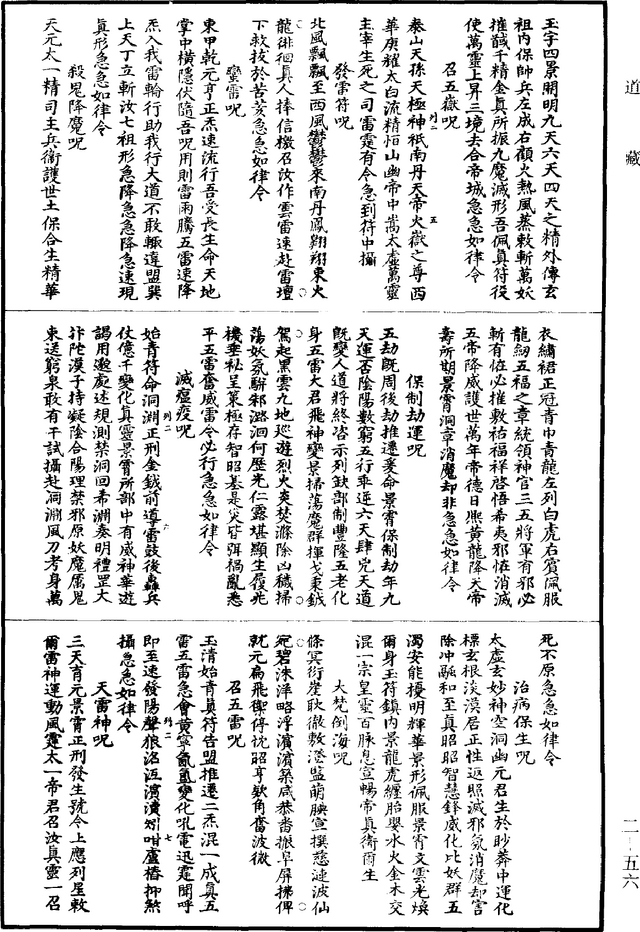 道藏
玉字四景開明九天六天四天之精外傳玄
祖内保帥兵左成右顧火熱風蒸敕斬萬妖
摧馘千精金真所振九魔滅形吾佩真符役
使萬靈上昇三境去合帝城急急如律令
召五嶽呪
泰山天孫天極神祇南丹天帝火嶽之尊西
華庚耀太白流精恒山幽帝中嵩太虛萬靈
主宰生死之司雷霆有令急到符中攝
發雷符呪
北風飄飄至西風鬱鬱來南丹鳳翔翔東火
龍徘徊真人捧信檄召汝作雲雷速赴雷壇
下救拔於苦爰急急如律令
霻雷呪
東甲乾元亨正炁速流行吾受長生命天地
掌中橫隱伏隨吾呪用則雷雨騰五雷速降
炁入我雷輪行助我行大道不敢輒違盟巽
上天丁立斬汝七祖形急降急急降急速現
真形急急如律令
殺鬼降魔呪
天元太一精司主兵衛護世土保合生精華
衣繡裙正冠青巾青龍左列白虎右賓佩服
龍紉五福之章統領神官三五將軍有邪必
斬有恠必摧敷祐福祥啓悟希夷邪恠消滅
五帝降威護世萬年帝德日熙黄龍降天帝
壽所期景霄洞章消魔却非急急如律令
保制劫運呪
五劫既周後劫推遷爰命景霄保制劫年九
天運否陰陽數窮五行乖逆六天肆兇天道
既變人道將終咨示列缺部制豐隆五老化
身五雷大君飛神變景掃蕩魔群揮戈秉鉞
駕起黑雲九地巡遊烈火焱焚滌除凶穢掃
蕩妖氛駢邪潞洄何歷光仁露堪顯生復兆
機垂秘呈策極存智昭基是災咎弭禍亂悉
平五雷奮威雷令必行急急如律令
滅瘟疫呪
始青符命洞淵正刑金鉞前導雷鼓後轟兵
仗億千變化真靈景霄所部中有威神華遊
謁用邀處述規測禁洞回希淵奏明禮罡大
抃陀漢子持凝陰合陽理禁邪原妖魔厲鬼
束送窮泉敢有干試攝赴洞淵風刀考身萬
死不原急急如律令
治病保生呪
太虛玄妙神空洞幽元君生於眇莽中運化
標玄根淡漠居正性返照滅邪氛消魔却害
除冲融和至真昭昭智慧鋒威化比妖群五
濁安能擾明輝華景形佩服景霄文雲光煥
爾身玉符鎮内景龍虎纏胎嬰水火金木交
混一宗皇靈百脉息宣暢帝真衛爾生
大梵倒海呪
絛冥衍崖耿徹敷澄監萌腴宣撰慈漣波仙
宛碧洙洋略浮濵濵築咸恭畨振阜屏拂俾
就元扁飛禦停忱昭亨欵角奮波微
召五雷呪
玉清始青真符告盟推遷二炁混一成真五
雷五雷急會黄寧氤氳變化吼電迅霆聞呼
即至速發陽聲狼洛沍濵瀆矧㖠盧椿抑煞
攝急急如律令
天雷神呪
三天育元景霄正刑發生號令上應列星敕
爾雷神運動風霆太一帝君召汝真靈一召
二一五六